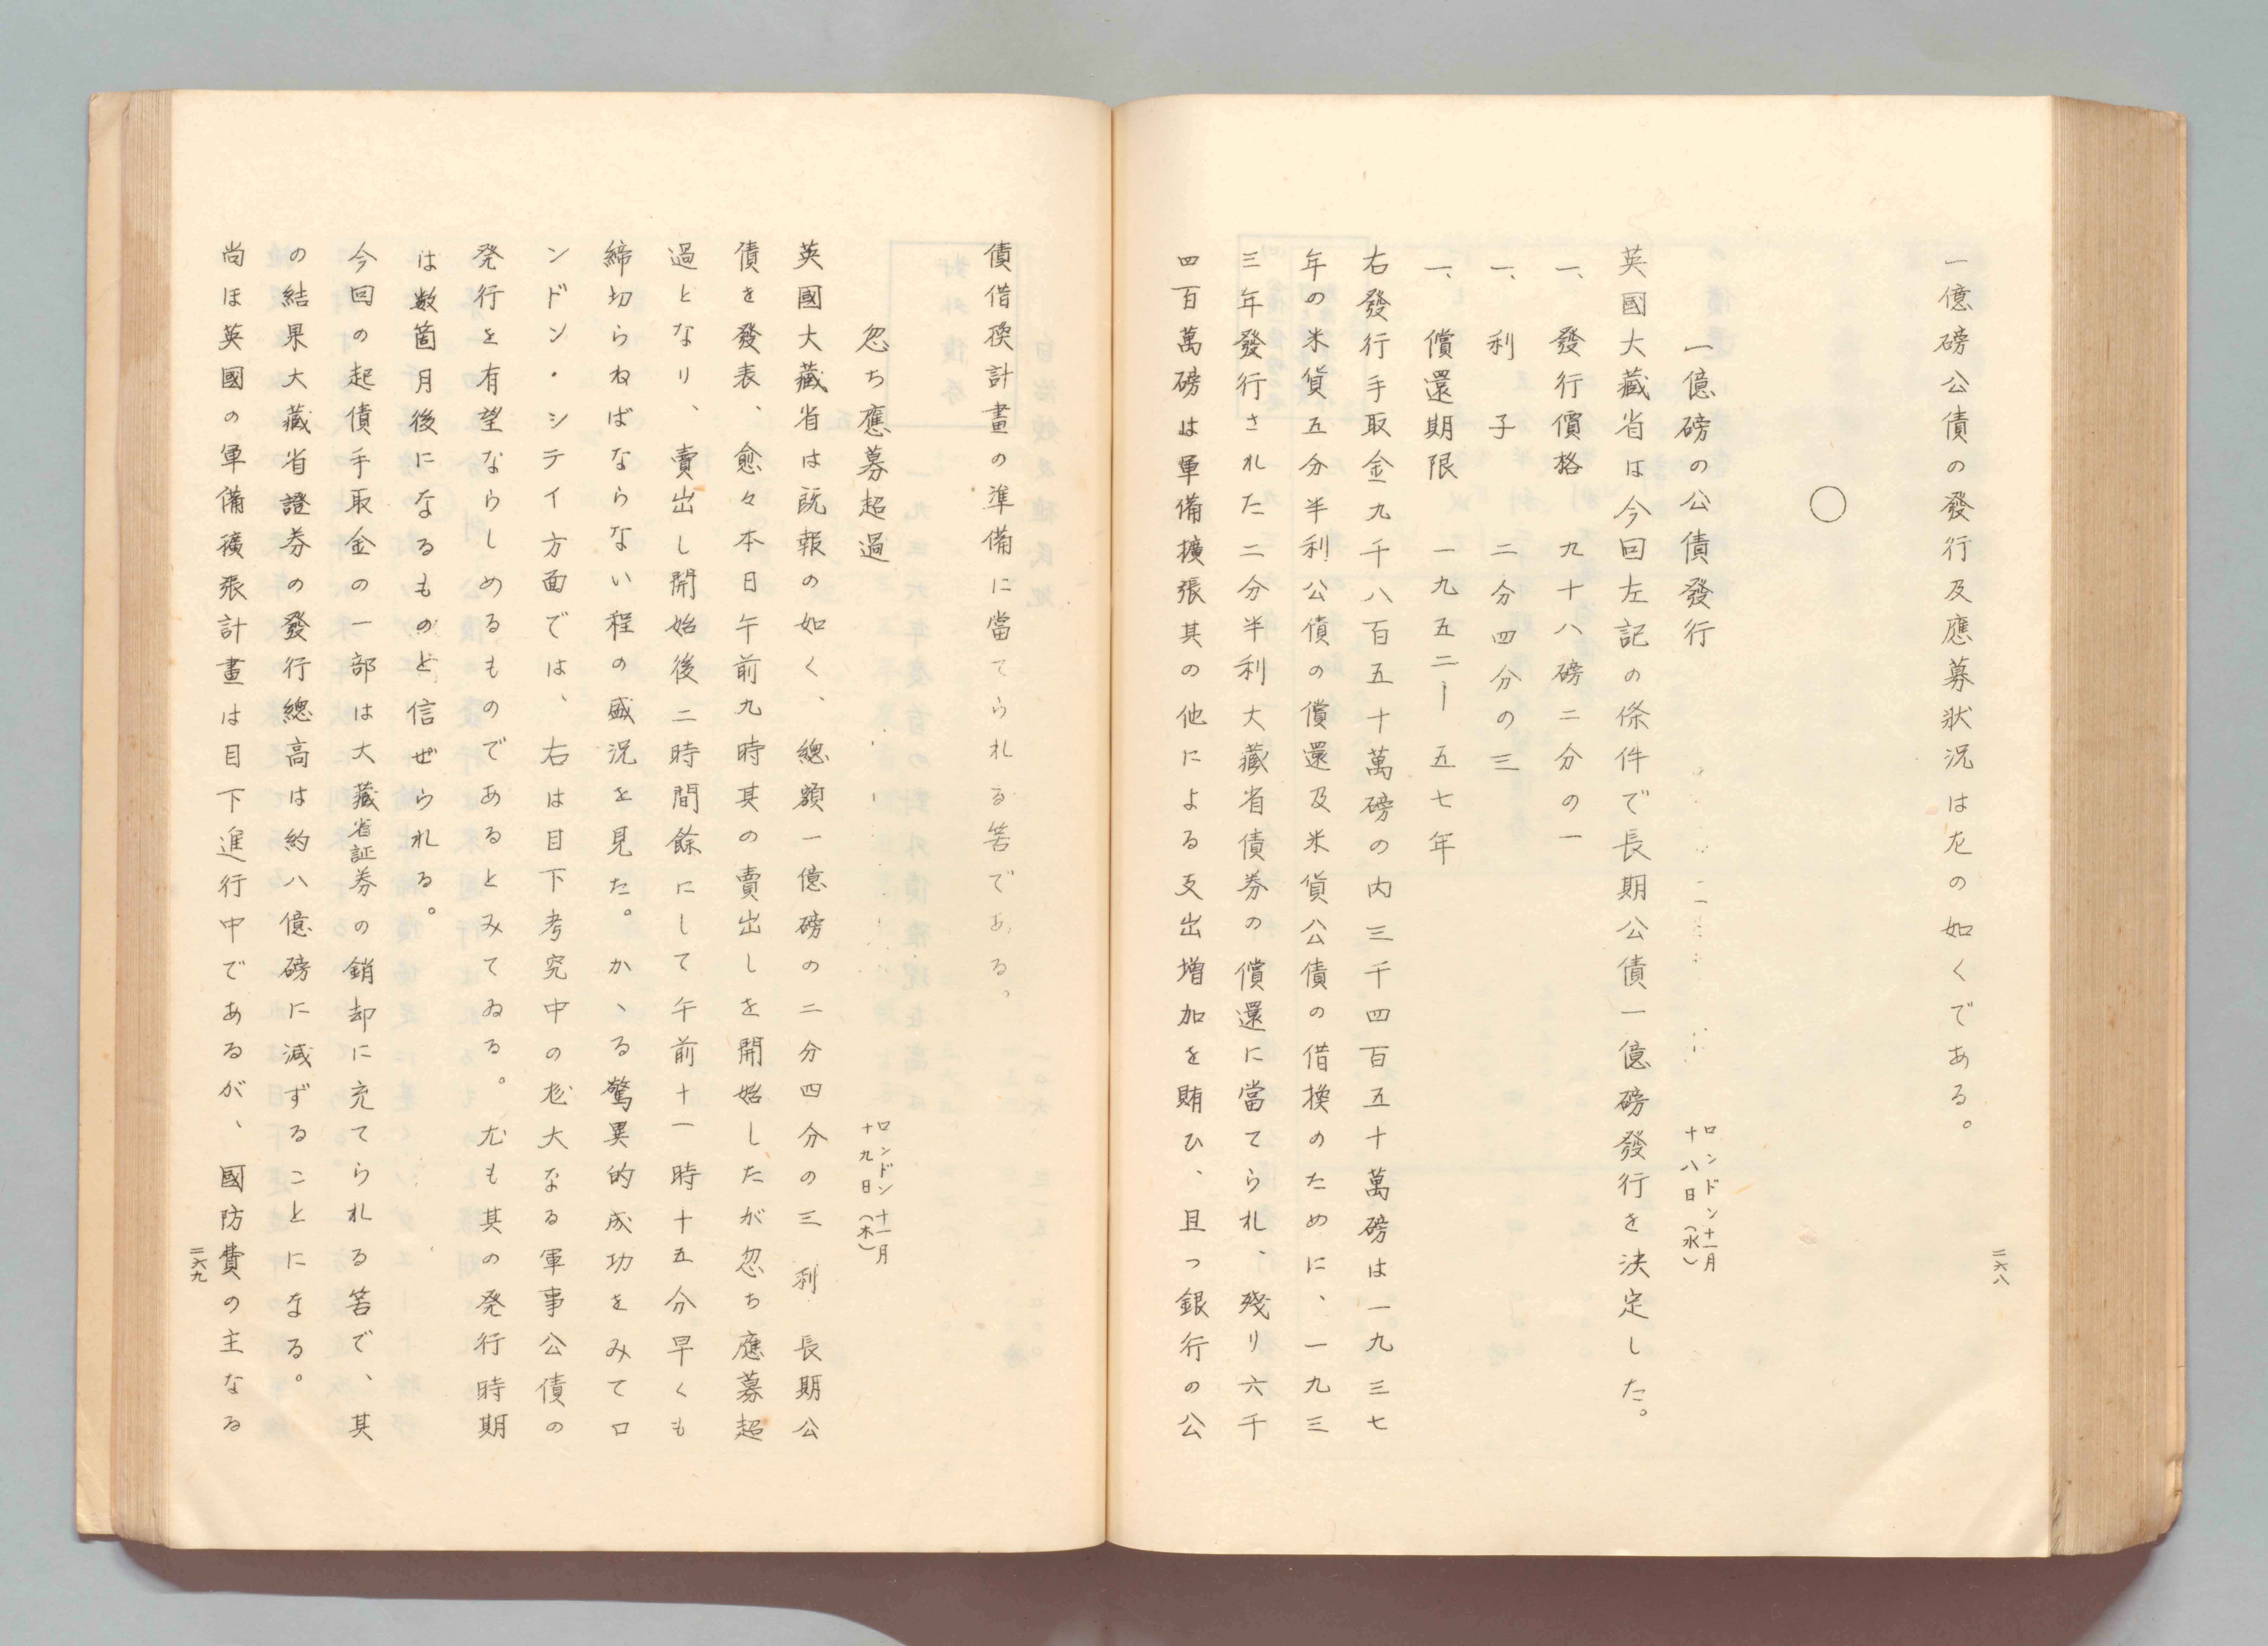 一億磅公債の發行及應募狀況は左の如くである。
○
一億磅の公債發行
ロンドン十一月
十八日（水）
英國大藏省は今回左記の條件で長期公債一億磅發行を決定した。
一、發行價格　九十八磅二分の一
一、利子　二分四分の三
一、償還期限　一九五二ー五七年
右發行手取金九千八百五十萬磅の内三千四百五十萬磅は一九三七
年の米貨五分半利公債の償還及米貨公債の借換のために、一九三
三年發行された二分半利大藏省債券の償還に當てられ、殘り六千
四百萬磅は軍備擴張其の他による支出增加を賄ひ、且つ銀行の公
二六八
債借換計畫の準備に當てられる筈である。
忽ち應募超過
ロンドン十一月
十九日（木）
英國大藏省は既報の如く、總額一億磅の二分四分の三利長期公
債を發表、愈々本日午前九時其の賣出しを開始したが忽ち應募超
過となり、賣出し開始後二時間餘にして午前十一時十五分早くも
締切らねばならない程の盛況を見た。かゝる驚異的成功をみてロ
ンドン・シテイ方面では、右は目下考究中の尨大なる軍事公債の
発行を有望ならしめるものであるとみてゐる。尤も其の発行時期
は数箇月後になるものと信ぜられる。
今回の起債手取金の一部は大藏省証券の銷却に充てられる筈で、其
の結果大藏省證券の發行總高は約八億磅に減ずることになる。
尚ほ英國の軍備擴張計畫は目下進行中であるが、國防費の主なる
二六九